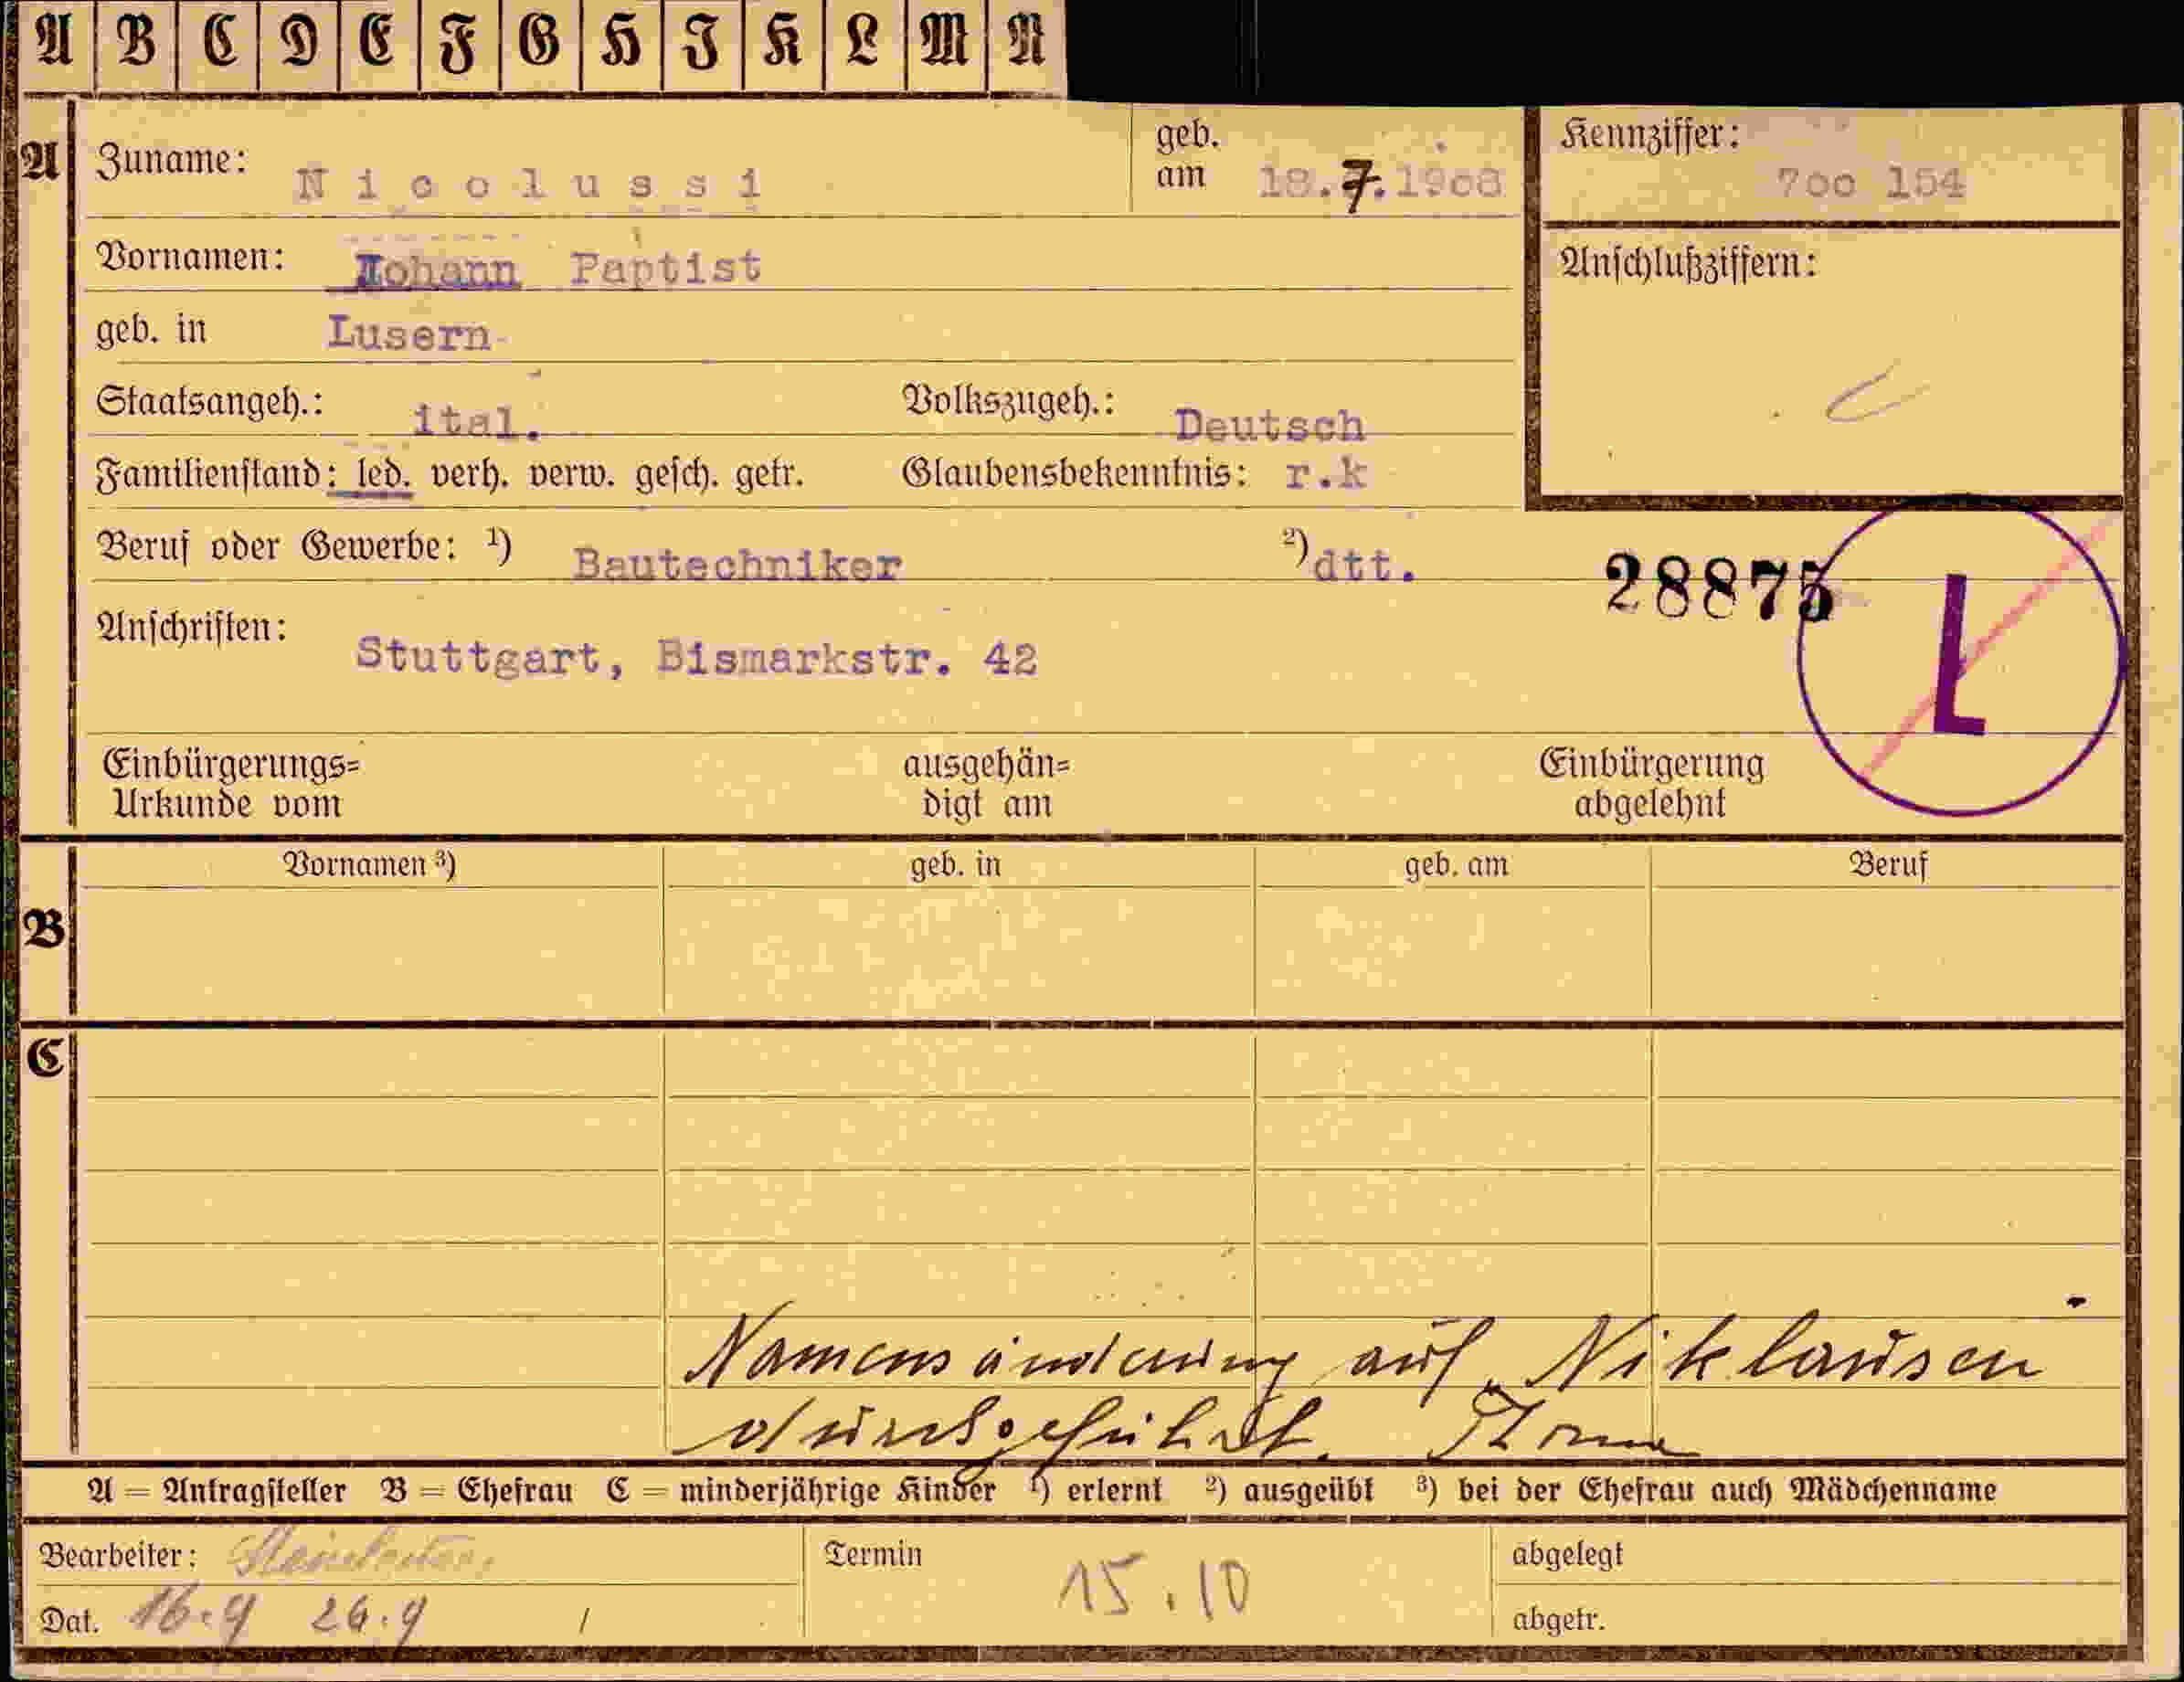 A B C D E F G H I K L M N
A
Zuname: Nicolussi
geb. am 18.7.1908
Kennziffer: 700 154
Vornamen: Johann Paptist
Anschlußziffern:
geb. in Lusern
Staatsangeh.: ital. Volkszugeh.: Deutsch
Familienstand: led. verh. verw. gesch. getr. Glaubensbekenntnis: r.k
Beruf oder Gewerbe: 1) Bautechniker 2) dtt.
28875
L
Anschriften: Stuttgart, Bismarkstr. 42
Einbürgerungs=
Urkunde vom
ausgehän=
digt am
Einbürgerung
abgelehnt
B
Vornamen 3) geb. in geb. am Beruf
C
Namensänderung auf Niklausen
durchgeführt.
A = Antragsteller B = Ehefrau C = minderjährige Kinder 1) erlernt 2) ausgeübt 3) bei der Ehefrau auch Mädchenname
Bearbeiter:
Termin 15.10
abgelegt
Dat. 16.9 26.9
abgetr.